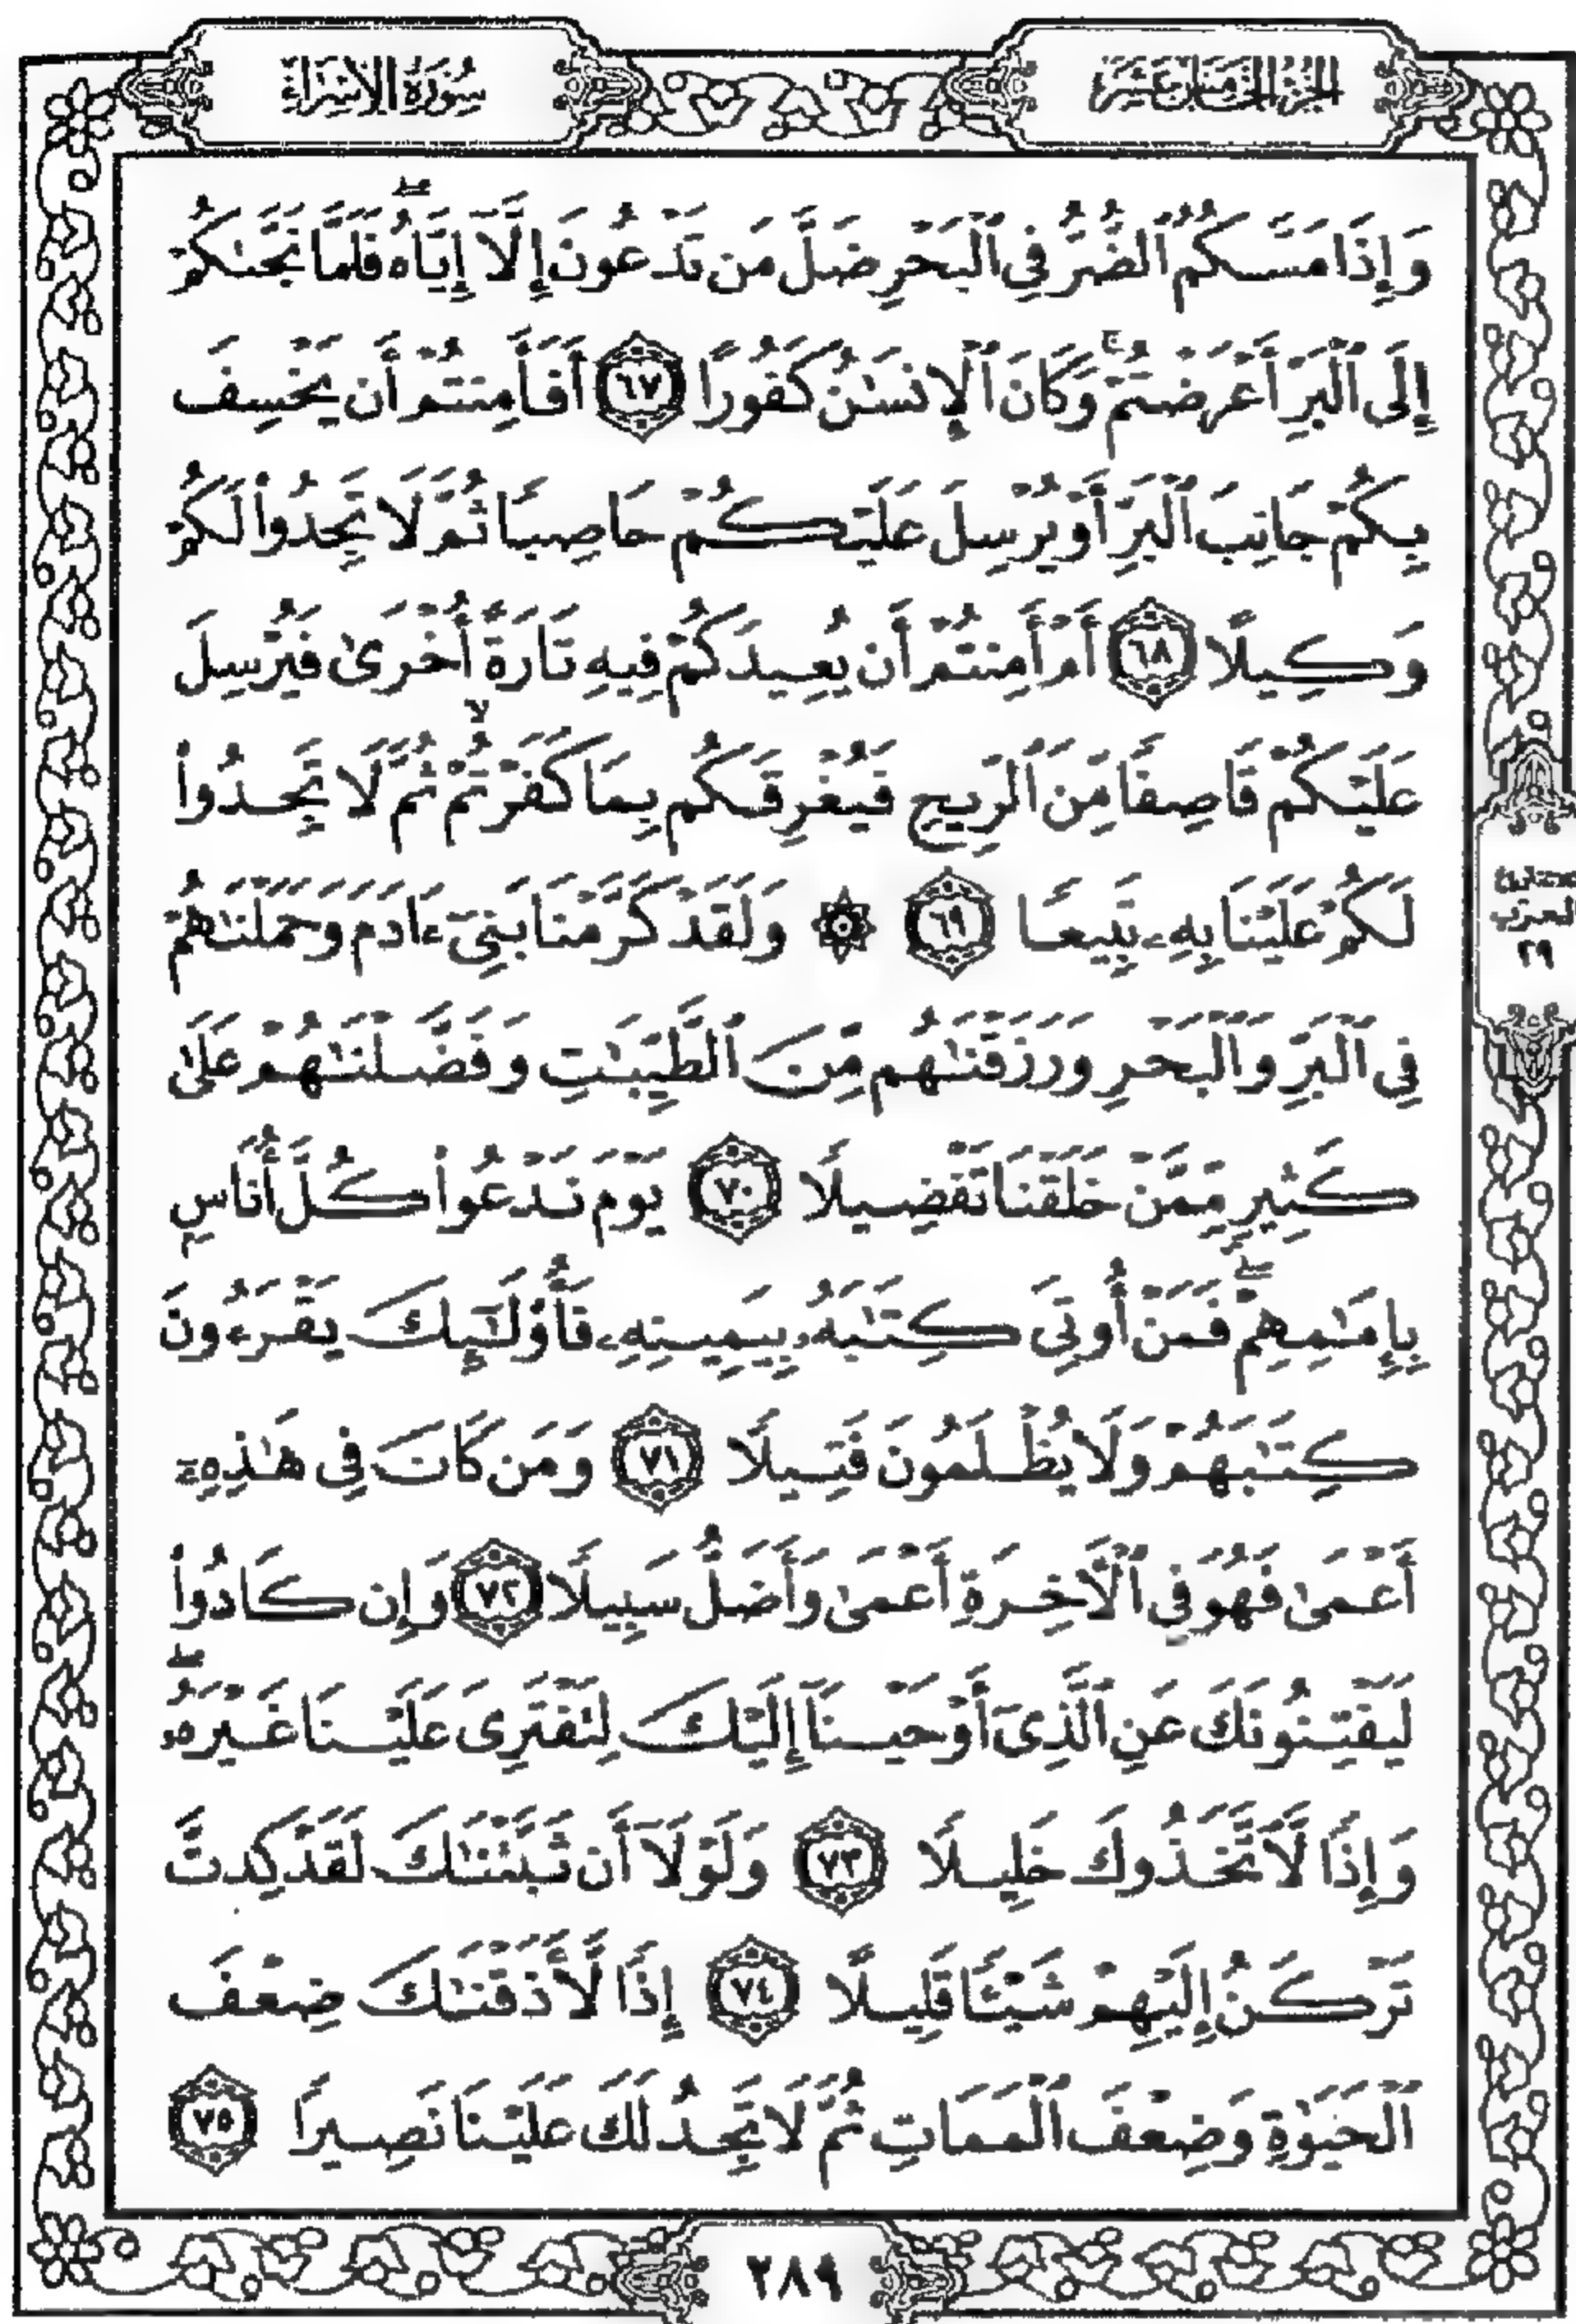 الجزء الخامس عشر
سورة الإسراء
وَإِذَا مَسَّكُمُ ٱلضُّرُّ فِي ٱلْبَحْرِ ضَلَّ مَن تَدْعُونَ إِلَّآ إِيَّاهُ ۖ فَلَمَّا نَجَّىٰكُمْ
إِلَى ٱلْبَرِّ أَعْرَضْتُمْ ۚ وَكَانَ ٱلْإِنسَـٰنُ كَفُورًا ٦٧ أَفَأَمِنتُمْ أَن يَخْسِفَ
بِكُمْ جَانِبَ ٱلْبَرِّ أَوْ يُرْسِلَ عَلَيْكُمْ حَاصِبًا ثُمَّ لَا تَجِدُوا۟ لَكُمْ
وَكِيلًا ٦٨ أَمْ أَمِنتُمْ أَن يُعِيدَكُمْ فِيهِ تَارَةً أُخْرَىٰ فَيُرْسِلَ
عَلَيْكُمْ قَاصِفًا مِّنَ ٱلرِّيحِ فَيُغْرِقَكُم بِمَا كَفَرْتُمْ ۙ ثُمَّ لَا تَجِدُوا۟
لَكُمْ عَلَيْنَا بِهِۦ تَبِيعًا ٦٩ ۞ وَلَقَدْ كَرَّمْنَا بَنِىٓ ءَادَمَ وَحَمَلْنَـٰهُمْ
فِي ٱلْبَرِّ وَٱلْبَحْرِ وَرَزَقْنَـٰهُم مِّنَ ٱلطَّيِّبَـٰتِ وَفَضَّلْنَـٰهُمْ عَلَىٰ
كَثِيرٍ مِّمَّنْ خَلَقْنَا تَفْضِيلًا ٧٠ يَوْمَ نَدْعُوا۟ كُلَّ أُنَاسٍۭ
بِإِمَـٰمِهِمْ ۖ فَمَنْ أُوتِىَ كِتَـٰبَهُۥ بِيَمِينِهِۦ فَأُو۟لَـٰٓئِكَ يَقْرَءُونَ
كِتَـٰبَهُمْ وَلَا يُظْلَمُونَ فَتِيلًا ٧١ وَمَن كَانَ فِى هَـٰذِهِۦٓ
أَعْمَىٰ فَهُوَ فِي ٱلْـَٔاخِرَةِ أَعْمَىٰ وَأَضَلُّ سَبِيلًا ٧٢ وَإِن كَادُوا۟
لَيَفْتِنُونَكَ عَنِ ٱلَّذِىٓ أَوْحَيْنَآ إِلَيْكَ لِتَفْتَرِىَ عَلَيْنَا غَيْرَهُۥ ۖ
وَإِذًا لَّٱتَّخَذُوكَ خَلِيلًا ٧٣ وَلَوْلَآ أَن ثَبَّتْنَـٰكَ لَقَدْ كِدتَّ
تَرْكَنُ إِلَيْهِمْ شَيْـًٔا قَلِيلًا ٧٤ إِذًا لَّأَذَقْنَـٰكَ ضِعْفَ
ٱلْحَيَوٰةِ وَضِعْفَ ٱلْمَمَاتِ ثُمَّ لَا تَجِدُ لَكَ عَلَيْنَا نَصِيرًا ٧٥
الحزب
٢٩
٢٨٩